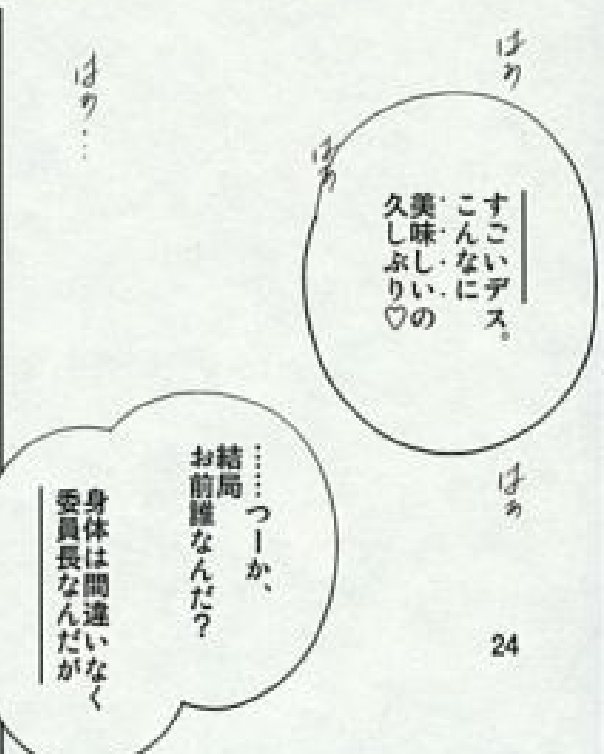 はぁ
――すごいデス。
こんなに
美味しいの
久しぶり♡
はぁ
はぁ
はぁ…
……つーか、
結局
お前誰なんだ?
身体は間違いなく
委員長なんだが――
24